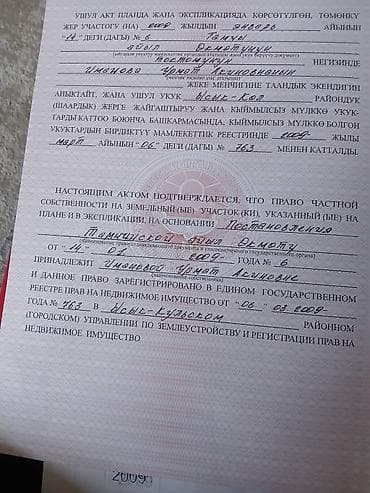 УШУЛ АКТ ПЛАНДА ЖАНА ЭКСПЛИКАЦИЯДА КӨРСӨТҮЛГӨН, ТӨМӨНКҮ
ЖЕР УЧАСТОГУ (НА) 2009 ЖЫЛДЫН январь АЙЫНЫН
"14" ДЕГИ (ДАГЫ) № 6 Тамчы
айыл Өкмөтүнүн
токтомунун НЕГИЗИНДЕ
Иманова Урмат Акиновнанын
ЖЕКЕ МЕНЧИГИНЕ ТААНДЫК ЭКЕНДИГИН
АНЫКТАЙТ, ЖАНА УШУЛ УКУК Ысык-Көл РАЙОНДУК
(ШААРДЫК) ЖЕРГЕ ЖАЙГАШТЫРУУ ЖАНА КЫЙМЫЛСЫЗ МҮЛККӨ УКУК-
ТАРДЫ КАТТОО БОЮНЧА БАШКАРМАСЫНДА, КЫЙМЫЛСЫЗ МҮЛККӨ БОЛГОН
УКУКТАРДЫН БИРДИКТҮҮ МАМЛЕКЕТТИК РЕЕСТРИНДЕ 2009 ЖЫЛЫ
март АЙЫНЫН "06" ДЕГИ (ДАГЫ) № 763 МЕНЕН КАТТАЛДЫ.
НАСТОЯЩИМ АКТОМ ПОДТВЕРЖДАЕТСЯ, ЧТО ПРАВО ЧАСТНОЙ
СОБСТВЕННОСТИ НА ЗЕМЕЛЬНЫЙ (ЫЕ) УЧАСТОК (КИ), УКАЗАННЫЙ (ЫЕ) НА
ПЛАНЕ И В ЭКСПЛИКАЦИИ, НА ОСНОВАНИИ Постановления
Тамчинской айыл Окмоту
ОТ "14" 01 2009 ГОДА № 6
ПРИНАДЛЕЖИТ Имановой Урмат Акиновне
И ДАННОЕ ПРАВО ЗАРЕГИСТРИРОВАНО В ЕДИНОМ ГОСУДАРСТВЕННОМ
РЕЕСТРЕ ПРАВ НА НЕДВИЖИМОЕ ИМУЩЕСТВО ОТ "06" 03 2009
ГОДА № 763 В Ысык-Кульском РАЙОННОМ
(ГОРОДСКОМ) УПРАВЛЕНИИ ПО ЗЕМЛЕУСТРОЙСТВУ И РЕГИСТРАЦИИ ПРАВ НА
НЕДВИЖИМОЕ ИМУЩЕСТВО
2009